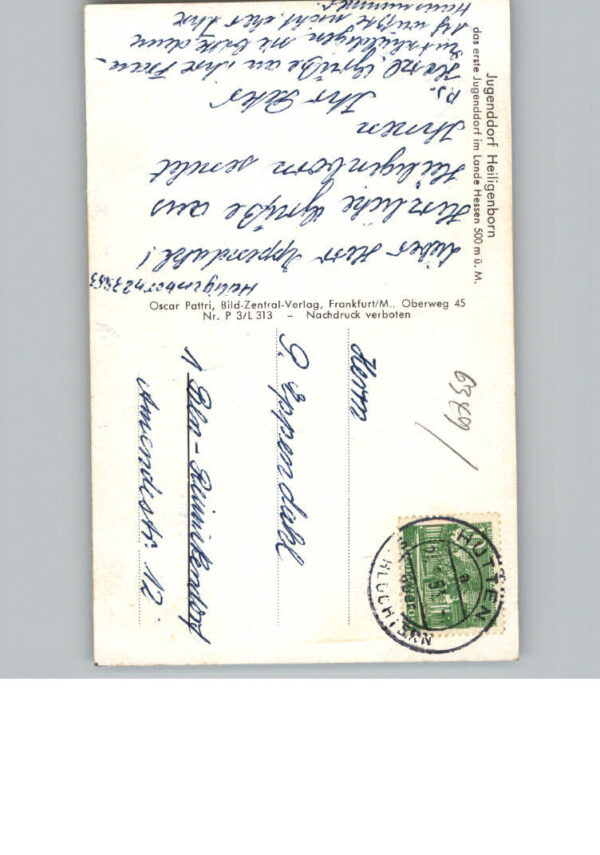 Jugenddorf Heiligenborn
das erste Jugenddorf im Lande Hessen 500 m ü. M.
Heiligenborn
Lieber Herr Eppendahl!
Herzliche Grüße aus
Heiligenborn sendet
Ihnen
Ihr
P.S.
Herzl. Grüße an Ihre Frau.
entschuldigen Sie bitte denn
ich wußte nicht aber Ihre
Hausnummer.
Oscar Pattri, Bild-Zentral-Verlag, Frankfurt/M., Oberweg 45
Nr. P 3/L 313 – Nachdruck verboten
Herrn
G. Eppendahl
1 Bln-Reinickendorf
Amendestr. 12
HUTTEN